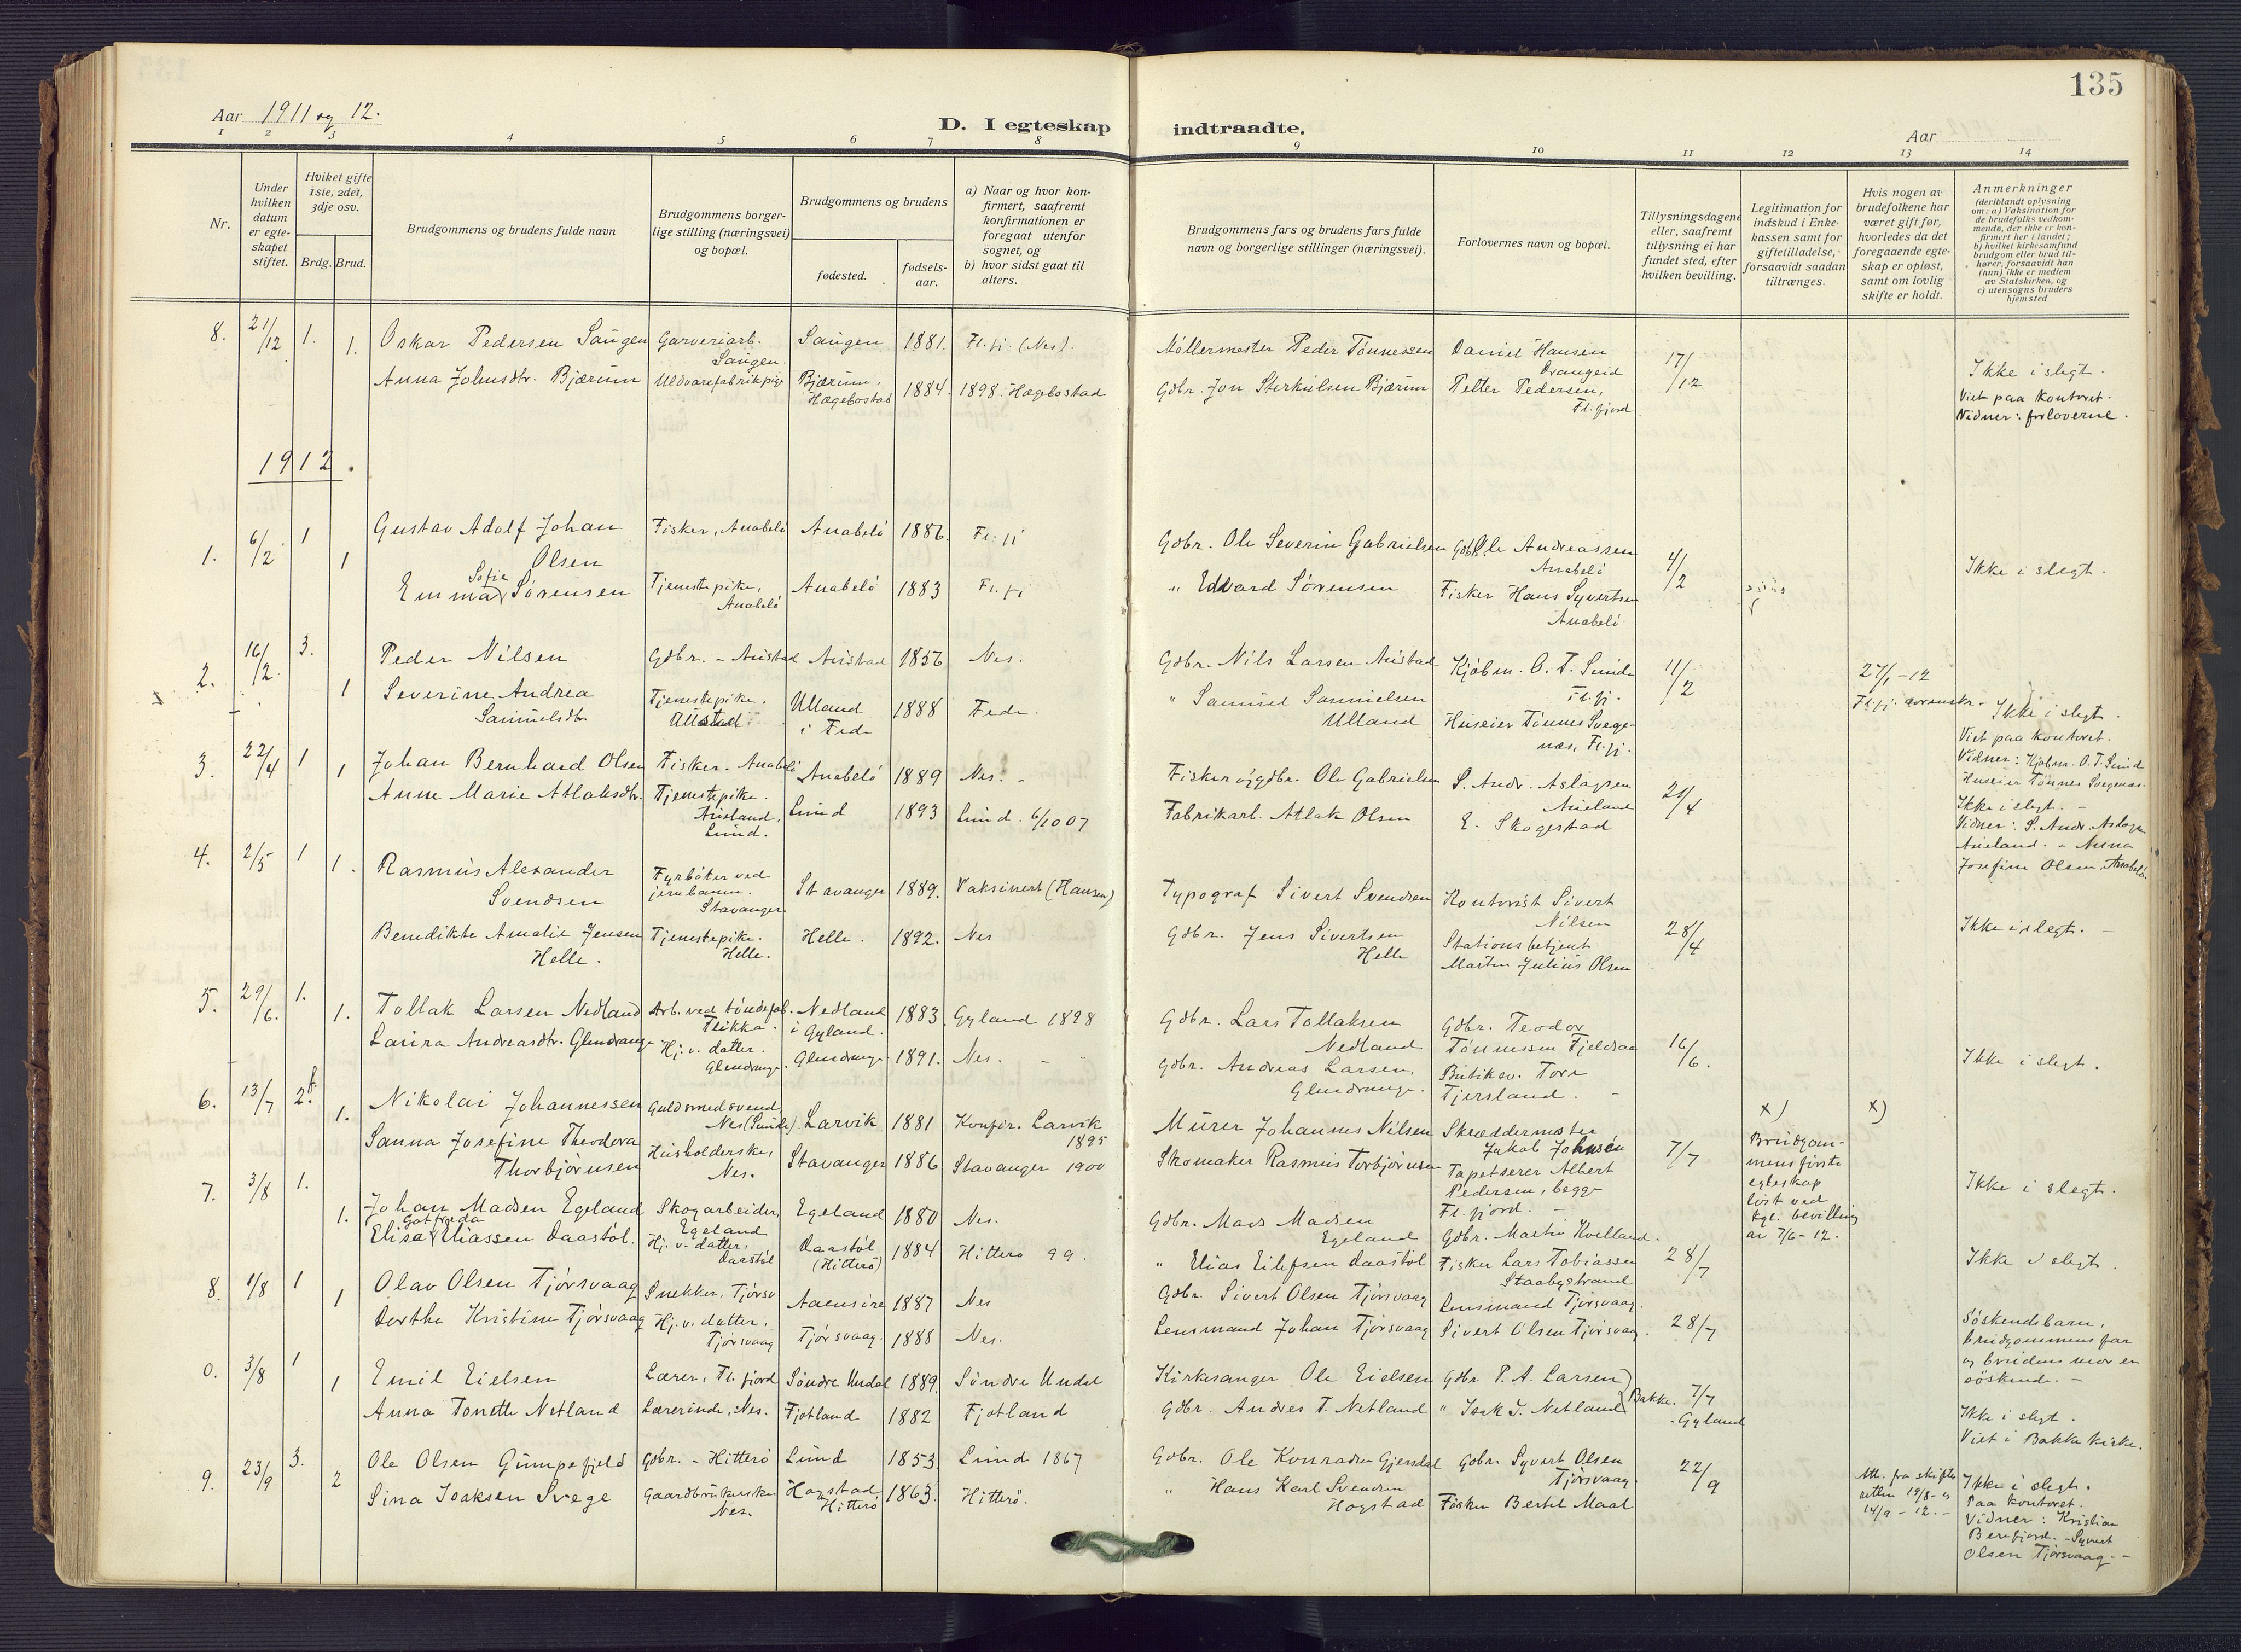 135
Aar 1911 og 12.
D. I egteskap indtraadte.
Aar
1 2 3 4 5 6 7 8 9 10 11 12 13 14
Nr.
Under hvilken datum er egteskapet stiftet.
Hviket gifte 1ste, 2det, 3dje osv.
Brdg. Brud.
Brudgommens og brudens fulde navn
Brudgommens borgerlige stilling (næringsvei) og bopæl.
Brudgommens og brudens
fødested.
fødselsaar.
a) Naar og hvor konfirmert, saafremt konfirmationen er foregaat utenfor sognet, og
b) hvor sidst gaat til alters.
Brudgommens fars og brudens fars fulde navn og borgerlige stillinger (næringsvei).
Forlovernes navn og bopæl.
Tillysningsdagene eller, saafremt tillysning ei har fundet sted, efter hvilken bevilling.
Legitimation for indskud i Enkekassen samt for giftetilladelse, forsaavidt saadan tiltrænges.
Hvis nogen av brudefolkene har været gift før, hvorledes da det foregaaende egteskap er opløst, samt om lovlig skifte er holdt.
Anmerkninger (deriblandt oplysning om: a) Vaksination for de brudefolks vedkommende, der ikke er konfirmert her i landet; b) hvilket kirkesamfund brudgom eller brud tilhører, forsaavidt han (hun) ikke er medlem av Statskirken, og c) utensogns bruders hjemsted
8. 21/12 1. Oskar Pedersen Saugen Garveriarb. Saugen. Saugen 1881. Fl.fj. (Nes). Møllermester Peder Tønnessen Daniel Hansen Drangeid 17/12
1. Anna Johnsdtr. Bjærum Uldvarefabrikpige Bjærum, Hægebostad 1884. 1898. Hægebostad Gdbr. Jon Sterkulsen Bjærum Petter Pedersen, Fl.fjord Ikke i slegt.
Viet paa kontoret.
Vidner: forloverne.
1912.
1. 6/2 1 Gustav Adolf Johan Olsen Fisker, Anabelø Anabelø 1886. Fl.fj Gdbr. Ole Severin Gabrielsen Gdbr. Ole Andreassen Anabelø 4/2
1 Emma Sofie Sørensen Tjenestepike, Anabelø Anabelø 1883 Fl.fj " Edvard Sørensen Fisker Hans Syvertsen Anabelø Ikke i slegt.
2. 16/2. 3. Peder Nilsen Gdbr. - Austad Austad 1856 Nes. Gdbr. Nils Larsen Austad Kjøbm. O. T. Sunde Fl.fj. 11/2 27/1-12
1 Severine Andrea Samuelsdtr. Tjenestepike. Austad Ulland i Feda 1888 Feda. " Samuel Samuelsen Ulland Huseier Tønnes Svegenæs, Fl.fj. Ikke i slegt.
Viet paa kontoret.
Vidner: Kjøbm. O. T. Sunde
Huseier Tønnes Svegenæs.
3. 22/4 1 Johan Bernhard Olsen Fisker. Anabelø Anabelø 1889 Nes. - Fisker og gdbr. Ole Gabrielsen S. Andr. Aslagsen Aneland 21/4
1 Anne Marie Atlaksdtr. Tjenestepike. Aneland, Lund. Lund 1893 Lund. 6/10 07 Fabrikarb. Atlak Olsen E. Skogestad
Ikke i slegt. -
Vidner: S. Andr. Aslagsen
Aneland. - Anna
Josefine Olsen, Anabelø.
4. 2/5 1 Rasmus Alexander Svendsen Fyrbøter ved jernbanen. Stavanger. Stavanger 1889. Vaksinert (Hansen) Typograf Sivert Svendsen Kontorist Sivert Nilsen 28/4
1. Benedikte Amalie Jensen Helle. Tjenestepike. Helle. Helle. 1892. Nes Gdbr. Jens Sivertsen Helle Stationsbetjent Martin Julius Olsen Ikke i slegt. -
5. 29/6. 1. Tollak Larsen Nedland Arb. ved tøndefab. Flikka. Nedland i Gyland. 1883. Gyland 1898 Gdbr. Lars Tollaksen Nedland Gdbr. Teodor Tønnessen Fjeldsaa 16/6.
1. Laura Andreasdtr. Glendrange Hj. v. datter. Glendrange. Glendrange 1891. Nes. - - Gdbr. Andreas Larsen, Glendrange. Butiksv. Tore Tjersland. Ikke i slegt.
6. 13/7 2. Nikolai Johannessen Guldsmedsvend Nes (Sunde). Larvik 1881 Konfir. Larvik 1895 Murer Johannes Nilsen Skræddermester Jakob Johnsen 7/7 x) x)
1. Sanna Josefine Theodora Thorbjørnsen Husholderske, Nes. Stavanger 1886 Stavanger 1900 Skomaker Rasmus Torbjørnsen Tapetserer Albert Pedersen, begge Fl.fjord. Brudgommens første egteskap løst ved kgl. bevilling av 7/6-12. Ikke i slegt.
7. 3/8 1. Johan Madsen Egeland Skogarbeider, Egeland Egeland 1880 Nes. Gdbr. Mads Madsen Egeland Gdbr. Martin Kvelland. 28/7
1. Elisa Gotfreda Eliassen Daastøl. Hj. v. datter, Daastøl Daastøl (Hitterø) 1884 Hitterø 99. " Elias Eilefsen Daastøl Fisker Lars Tobiassen Staabystrand Ikke i slegt.
8. 1/8 1 Olav Olsen Tjørsvaag Snekker, Tjørsv Aaensire 1887 Nes Gdbr. Sivert Olsen Tjørsvaag Lensmand Tjørsvaag. 28/7
1 Dorthe Kristine Tjørsvaag Hj. v. datter, Tjørsvaag Tjørsvaag. 1888 Nes. Lensmand Johan Tjørsvaag Sivert Olsen Tjørsvaag. Søskendebarn, brudgommens far og brudens mor er søskende. -
0. 3/8 1 Emil Eielsen Lærer, Fl.fjord Søndre Undal 1889. Søndre Undal Kirkesanger Ole Eielsen Gdbr. P. A. Larsen Bakke. 7/7
1 Anna Tonette Netland Lærerinde, Nes. Fjotland 1882 Fjotland Gdbr. Andres T. Netland " Isak J. Netland -Gyland Ikke i slegt.
Viet i Bakke kirke.
9. 23/9 3. Ole Olsen Gumpefjeld Gdbr. - Hitterø Lund 1853 Lund 1867 Gdbr. Ole Konradsen Gjersdal Gdbr. Syvert Olsen Tjørsvaag. 22/9 Att. fra skifteretten 19/8- og 14/9-12. -
2 Sina Isaksen Svege Gaardbrukerske Nes. Hogstad Hitterø 1863. Hitterø. " Hans Karl Svendsen Hogstad Fisker Bertil Maal Ikke i slegt.
Paa kontoret.
Vidner: Kristian
Berefjord. - Syvert
Olsen Tjørsvaag. -